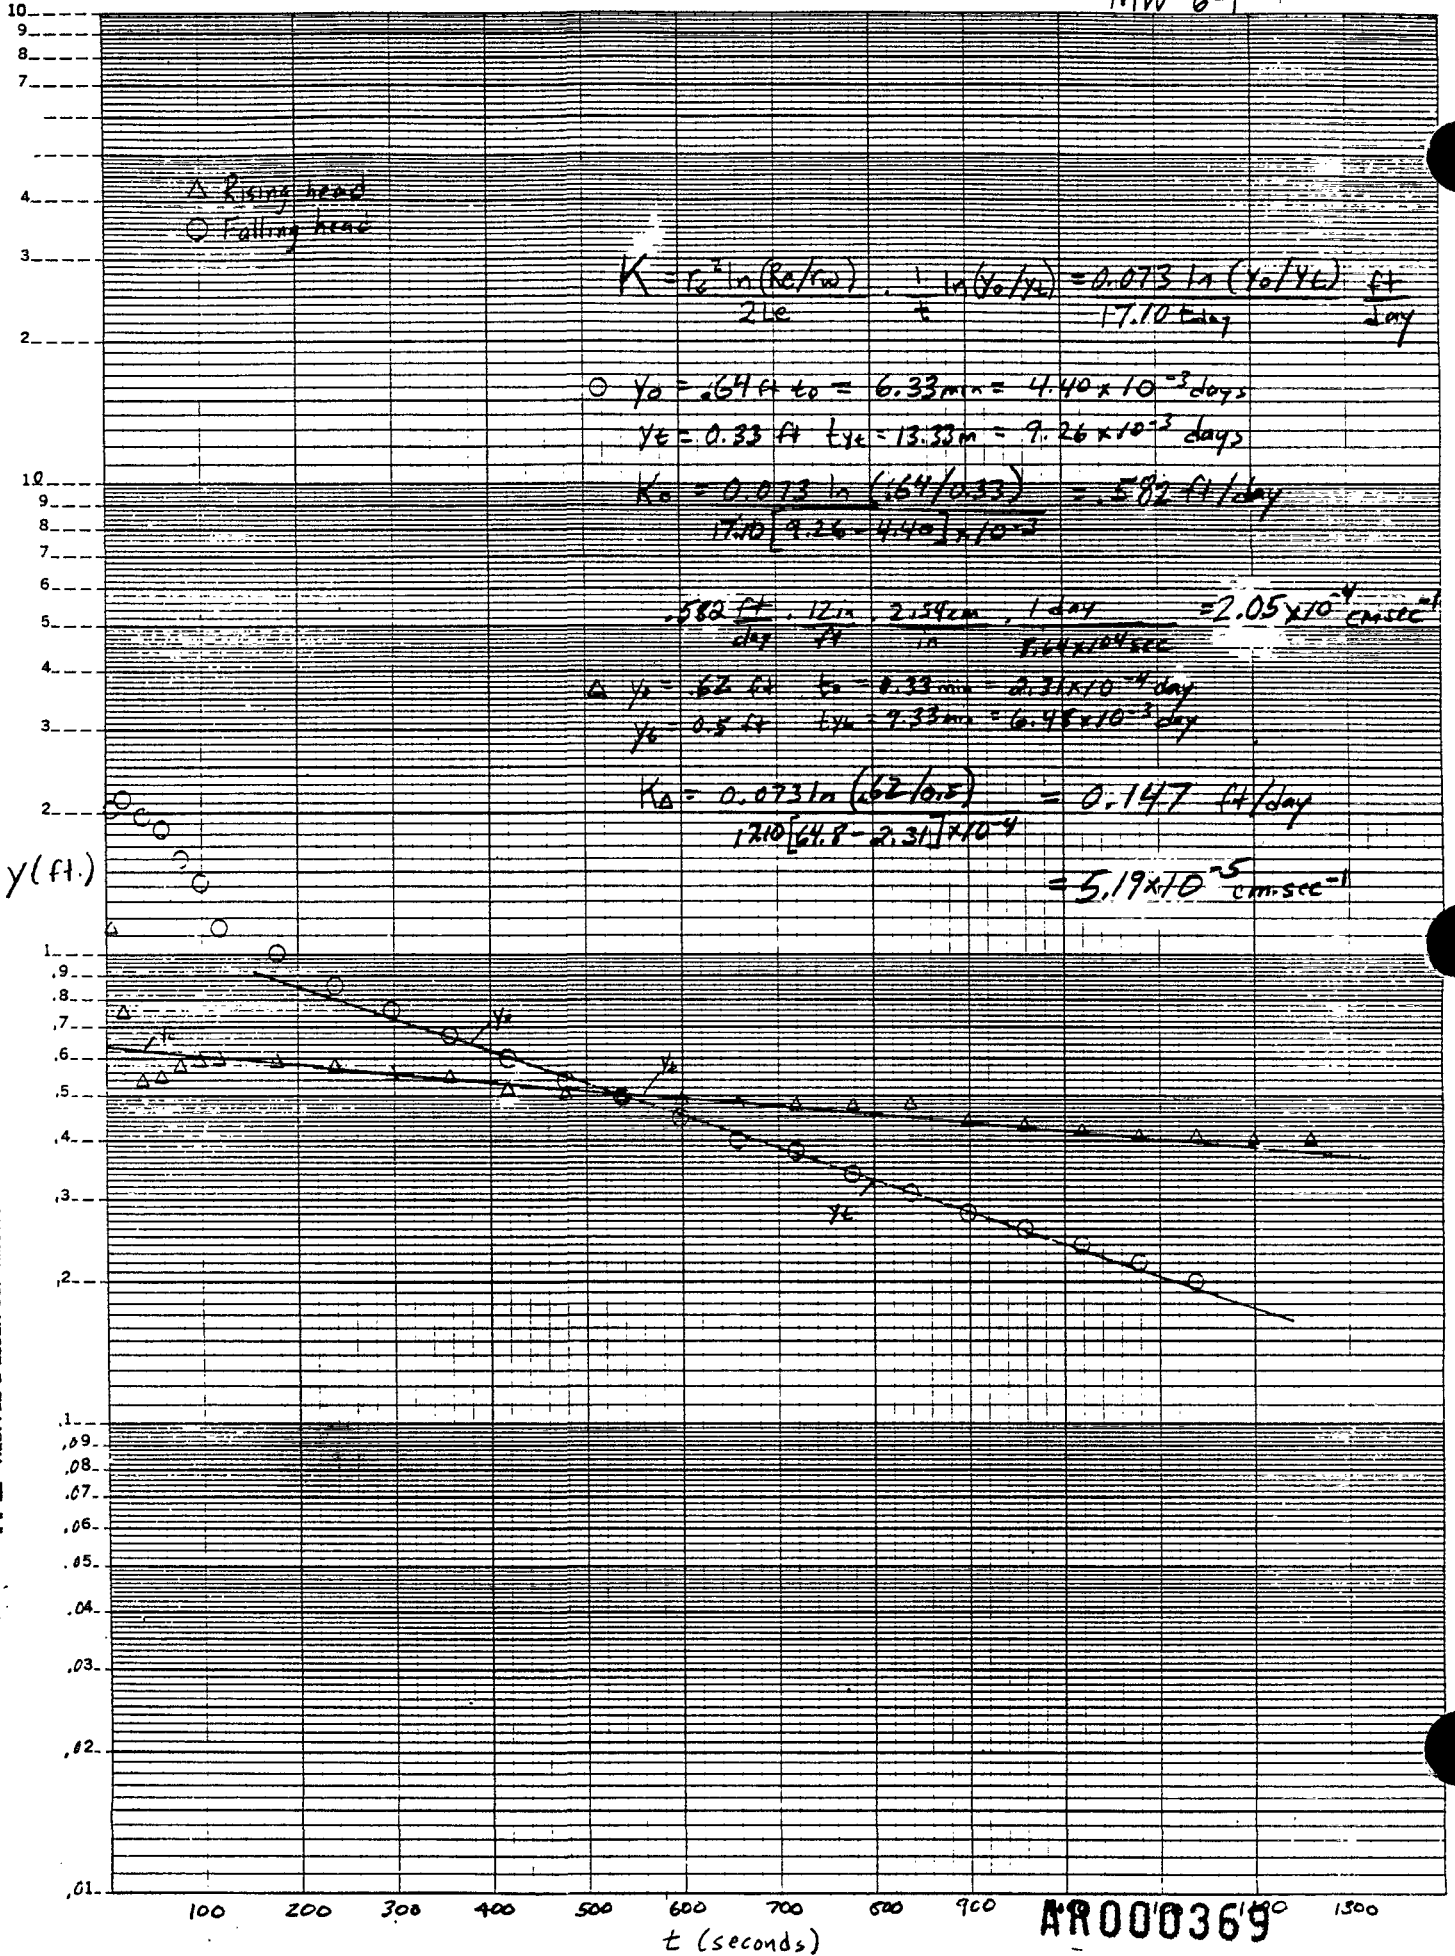 MW 6-1
10
9
8
7
4
3
2
10
9
8
7
6
5
4
3
2
1
.9
.8
.7
.6
.5
.4
.3
.2
.1
.09
.08
.07
.06
.05
.04
.03
.02
.01
△ Rising head
○ Falling head
K = rc² ln(Re/rw) / 2Le · 1/t ln(yo/yt) = 0.073 ln(yo/yt) / 17.10 tday ft/day
○ yo = .64 ft to = 6.33 min = 4.40 x 10⁻³ days
yt = 0.33 ft tyt = 13.33m = 9.26 x 10⁻³ days
Ko = 0.073 ln (.64/0.33) / 17.10 [9.26 - 4.40] x 10⁻³ = .582 ft/day
.582 ft/day · 12in/ft · 2.54cm/in · 1 day/8.64x10⁴ sec = 2.05 x 10⁻⁴ cm·sec⁻¹
△ yo = .62 ft to = 0.33 min = 2.31x10⁻⁴ day
yt = 0.5 ft tyt = 9.33 min = 6.48 x 10⁻³ day
K△ = 0.073 ln (.62/0.5) / 17.10 [64.8 - 2.31] x 10⁻⁴ = 0.147 ft/day
= 5.19x10⁻⁵ cm·sec⁻¹
y (ft.)
yo
yo
yt
yt
100 200 300 400 500 600 700 800 900 1300
t (seconds)
AR000369